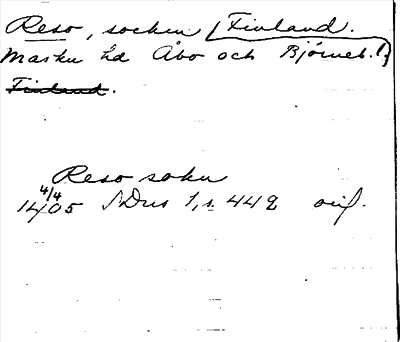 Reso, socken, Finland.
Masku hd Åbo och Björneb. l.
Finland.
Reso sokn
4/4
1405 SDns 1, s. 449 orig.